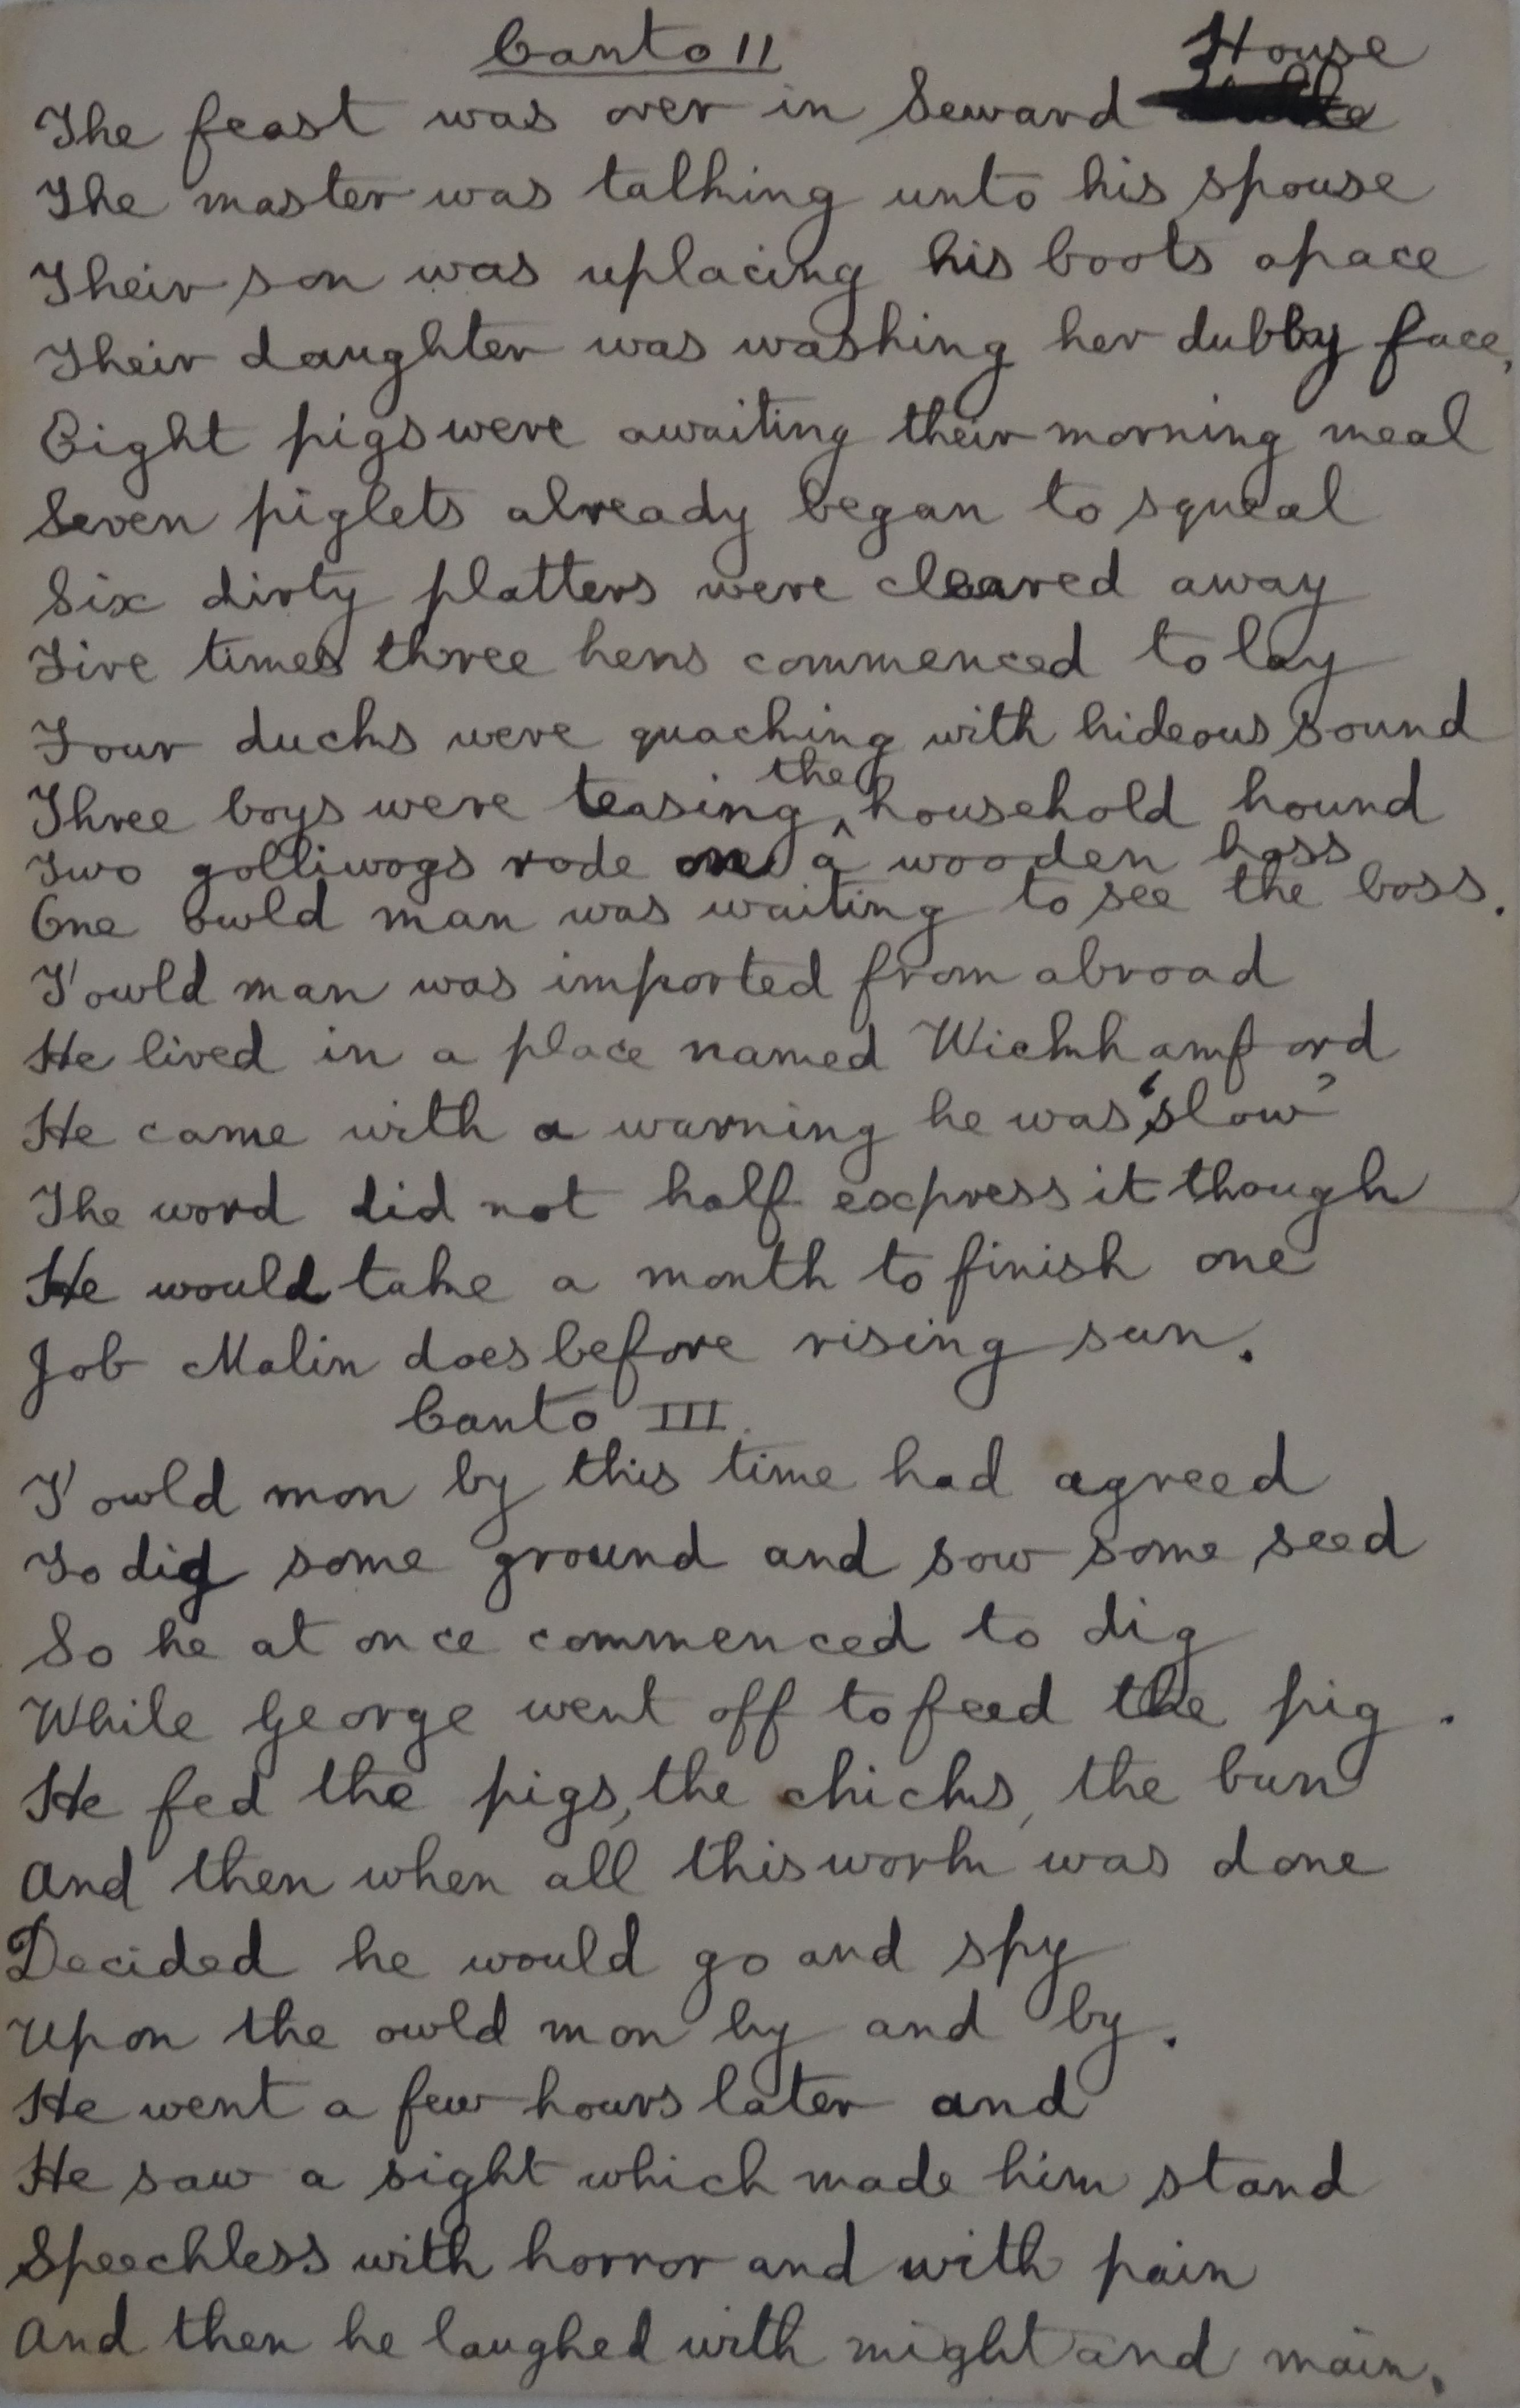 Canto II
House
The feast was over in Seward
The master was talking unto his spouse
Their son was uplacing his boots apace
Their daughter was washing her dubby face,
Eight pigs were awaiting their morning meal
Seven piglets already began to squeal
Six dirty platters were cleared away
Five times three hens commenced to lay
Four ducks were quacking with hideous sound
the
Three boys were teasing ^ household hound
Two golliwogs rode on a wooden hoss
One owld man was waiting to see the boss.
T'owld man was imported from abroad
He lived in a place named Wickhamford
He came with a warning he was 'slow'
The word did not half express it though
He would take a month to finish one
Job Malin does before rising sun.
Canto III.
T'owld mon by this time had agreed
To dig some ground and sow some seed
So he at once commenced to dig
While George went off to feed the pig.
He fed the pigs, the chicks, the bun
And then when all this work was done
Decided he would go and spy
Upon the owld mon by and by.
He went a few hours later and
He saw a sight which made him stand
Speechless with horror and with pain
And then he laughed with might and main.